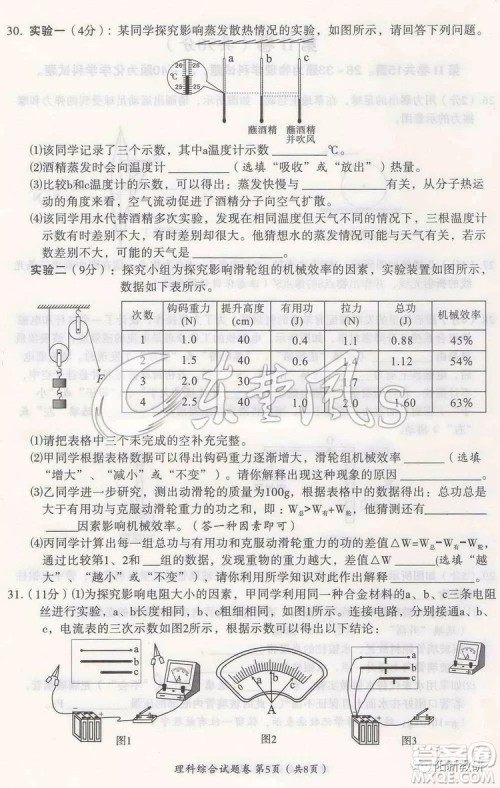 30. 实验一(4分)：某同学探究影响蒸发散热情况的实验，如图所示，请回答下列问题。
a b c
26 26
25 25
蘸酒精 蘸酒精
并吹风
(1)该同学记录了三个示数，其中a温度计示数 ℃。
(2)酒精蒸发时会向温度计 (选填“吸收”或“放出”)热量。
(3)比较b和c温度计的示数，可以得出：蒸发快慢与 有关，从分子热运
动的角度来看，空气流动促进了分子向空气扩散。
(4)该同学用水代替酒精多次实验，发现不同天气，在其他相同的情况下，三次
示数有时差别不大，有时差别大。他猜想水的蒸发情况可能与天气有关。示数
差别不大时，可能的天气是 。
实验二(9分)：探究小组为探究影响滑轮组的机械效率的因素，实验装置如图所示，
数据如下表所示。
次数 钩码重力(N) 提升高度(cm) 有用功(J) 拉力(N) 总功(J) 机械效率
1 1.0 40 0.4 1.1 0.88 45%
2 1.5 40 0.6 1.4 1.12 54%
3 2.0 30 1.7
4 2.5 40 1.0 2.0 1.60 63%
F
(1)请把表格中三个未完成的空补充完整。
(2)甲同学根据表格数据可以得出钩码重力逐渐增大，滑轮组的机械效率 (选填
“增大”、“减小”或“不变”)。请你根据所学知识对此作出解释 。
(3)乙同学进一步研究，测出动滑轮的质量为100g，根据表格数据可以得出：总功总是
大于有用功与克服动滑轮重力的功之和，即W总>W有+W轮。由此可以得出，还有
因素影响机械效率。(答一种因素即可)
(4)丙同学计算出每一组总功与有用功和克服动滑轮重力功的差值△W=W总-W有-W轮，
通过比较第1、2和 组的数据，发现物重越大，差值△W (选填“越
大”“越小”或“不变”)。请利用所学知识对此作出解释 。
31. (11分) (1)为探究影响电阻大小的因素，甲同学利用同一合金材料的a、b、c三条电阻
丝进行实验，a、b长度相同，b、c粗细相同，如图1所示。连接电路，分别接通a、b、
c，电流表的三次示数如图2所示，根据示数可以得出以下结论：
a
b
c
a b c
A
a
b
c
图1 图2 图3
理科综合试题卷 第5页(共8页)